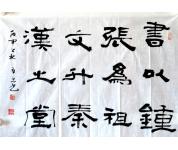 書以鍾
張為祖
文升秦
漢之堂